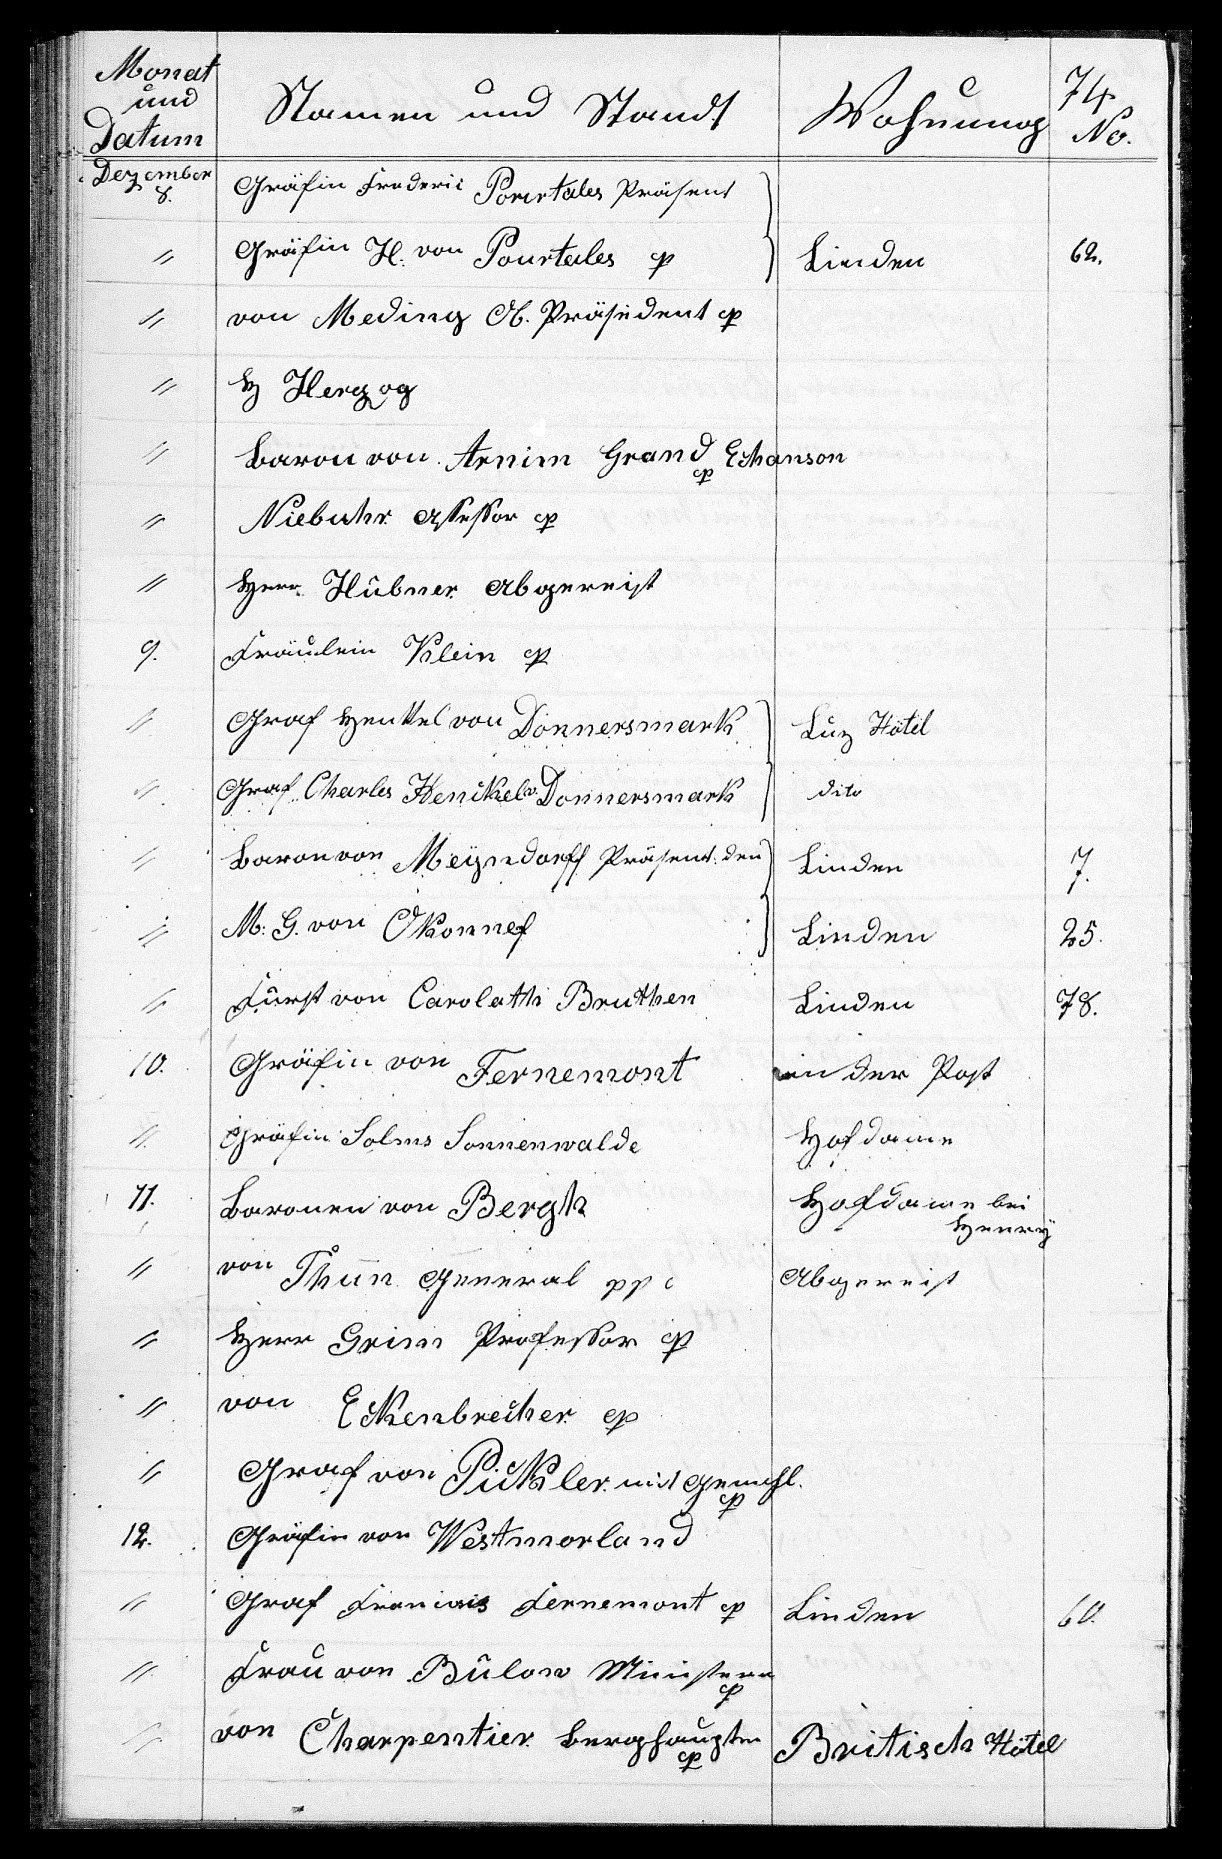 Monat und Datum Namen und Standt Wohnung 74. No.
Dezember 8. Gräfin Frederic Pourtales Präsent
" Gräfin H. von Pourtales cp Linden 62.
" von Meding Ob. Präsident cp
" H Herzog
" Baron von Arnim Grand Echanson cp
" Niebuhr Assessor cp
" Herr Hübner Abgereist
9. Fräulein Klein cp
" Graf Henkel von Donnersmark Luz Hôtel
" Graf Charles Henckel v. Donnersmark dito
" Baron von Meÿndorff Präsent: den Linden 7.
" M: G. von Okonnef Linden 25.
" Fürst von Carolath Beuthen Linden 78.
10. Gräfin von Fernemont in der Post
" Gräfin Solms Sonnenwalde Hofdame
11. Baronen von Bergh Hofdame bei Henrÿ
" von Thun General pp c Abgereist
" Herr Grim Professor cp
" von Eckenbrecher cp
" Graf von Pückler mit Gemahl. cp
12. Gräfin von Westmorland
" Graf Francois Fernemont cp Linden 60.
" Frau von Bülow Ministerin cp
" von Charpentier Berghauptm cp Britisch Hôtel